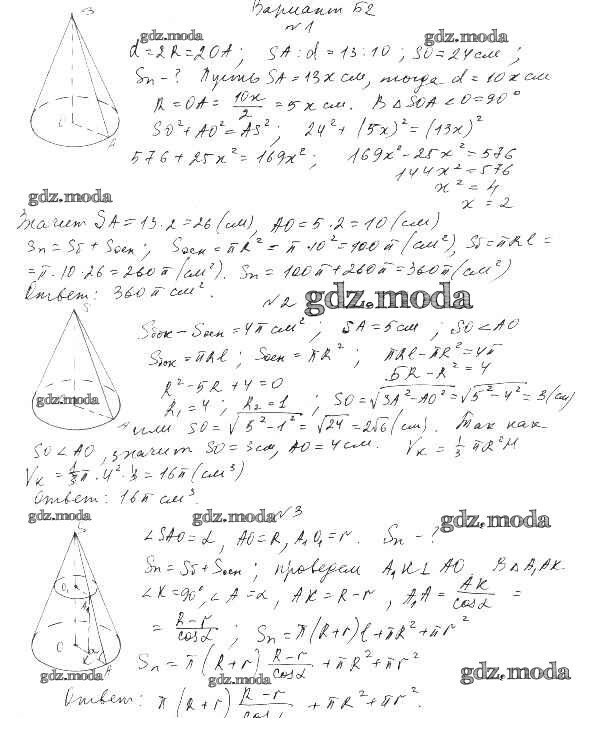 Вариант Б2
№1
gdz.moda gdz.moda
d = 2R = 2OA; SA : d = 13 : 10; SO = 24 см;
Sп - ? Пусть SA = 13x см, тогда d = 10x см
R = OA = 10x/2 = 5x см. В △SOA ∠O = 90°
SO² + AO² = AS²; 24² + (5x)² = (13x)²
576 + 25x² = 169x²; 169x² - 25x² = 576
144x² = 576
gdz.moda
x² = 4
x = 2
Значит SA = 13·2 = 26 (см), AO = 5·2 = 10 (см)
Sп = Sб + Sосн; Sосн = πR² = π·10² = 100π (см²), Sб = πRl =
= π·10·26 = 260π (см²). Sп = 100π + 260π = 360π (см²)
Ответ: 360π см².
№2 gdz.moda
Sбок - Sосн = 4π см²; SA = 5 см; SO < AO
Sбок = πRl; Sосн = πR²; πRl - πR² = 4π
5R - R² = 4
R² - 5R + 4 = 0
gdz.moda
R₁ = 4; R₂ = 1; SO = √SA² - AO² = √5² - 4² = 3 (см)
или SO = √5² - 1² = √24 = 2√6 (см). Так как
SO < AO, значит SO = 3 см, AO = 4 см. Vк = 1/3 πR²H
Vк = 1/3 π · 4² · 3 = 16π (см³)
Ответ: 16π см³.
gdz.moda gdz.moda №3 gdz.moda
∠SAO = α, AO = R, A₁O₁ = r. Sп - ?
Sп = Sб + Sосн; проведем A₁K ⊥ AO, В △A₁AK
∠K = 90°, ∠A = α, AK = R - r, A₁A = AK/cosα =
= R - r/cosα; Sп = π(R + r)l + πR² + πr²
Sп = π(R + r) R - r/cosα + πR² + πr²
gdz.moda gdz.moda gdz.moda
Ответ: π(R + r) R - r/cosα + πR² + πr².